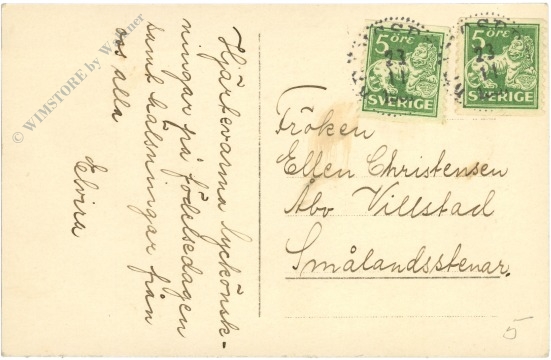 Hjärtevarma lyckönsk-
ningar på födelsedagen
samt hälsningar från
oss alla
Elvira
5 ÖRE
SVERIGE
5 ÖRE
SVERIGE
Fröken
Ellen Christensen
Åbo Villstad
Smålandsstenar.
5
© WIMSTORE by Wagner